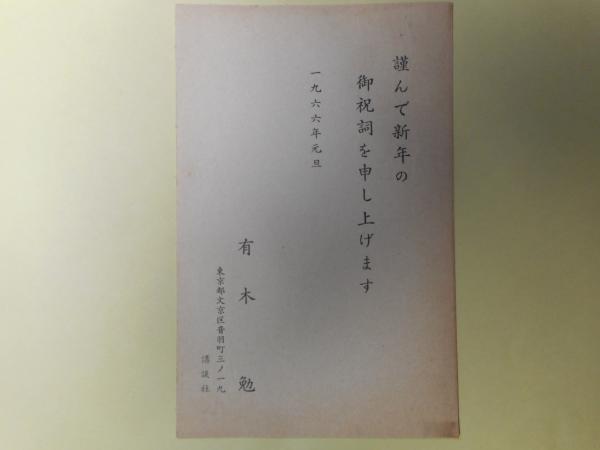 謹んで新年の
御祝詞を申し上げます
一九六六年元旦
有木勉
東京都文京区音羽町三ノ一九
講談社